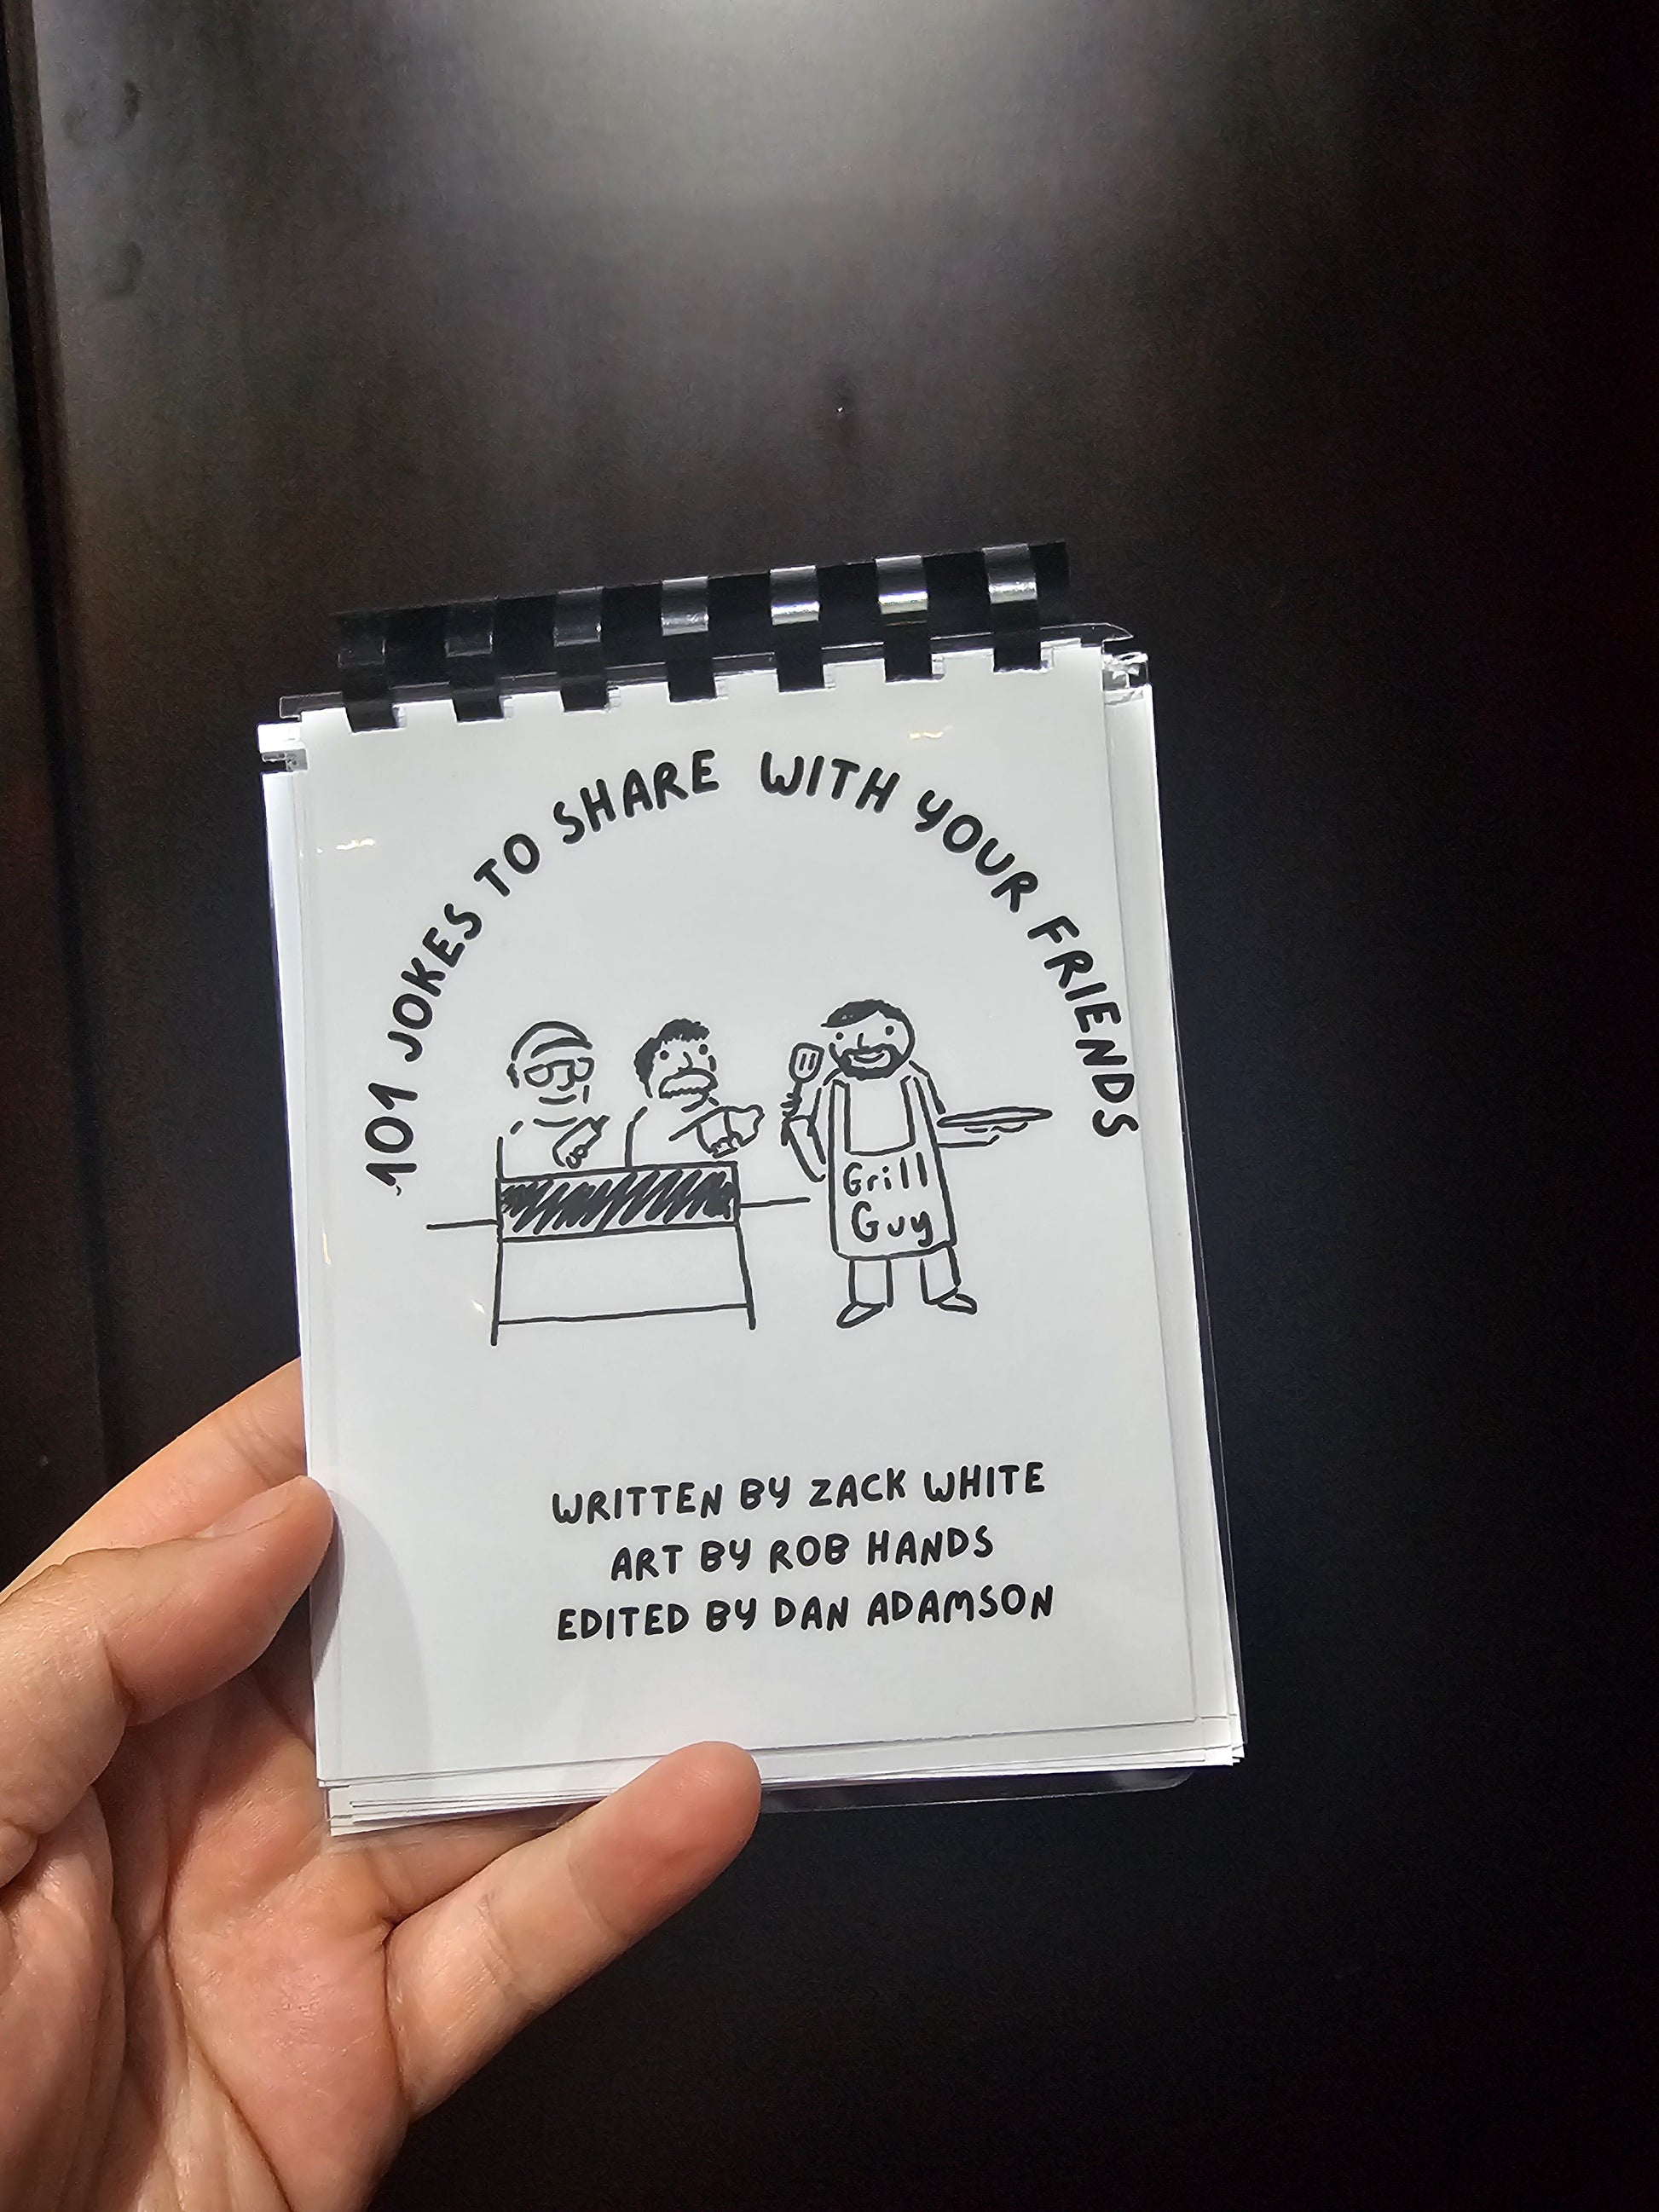 101 JOKES TO SHARE WITH YOUR FRIENDS
Grill
Guy
WRITTEN BY ZACK WHITE
ART BY ROB HANDS
EDITED BY DAN ADAMSON